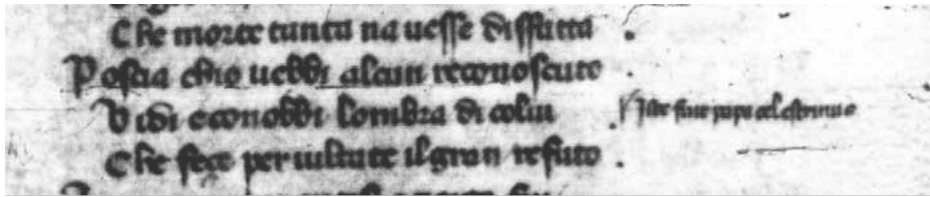 Che morte tanta na uesse disfatta .
Poscia chio uebbi alcun reconoscuto .
Vidi econobbi lombra di colui .
Iste fuit papa celestrinus
Che fece per uiltate ilgran refuto .